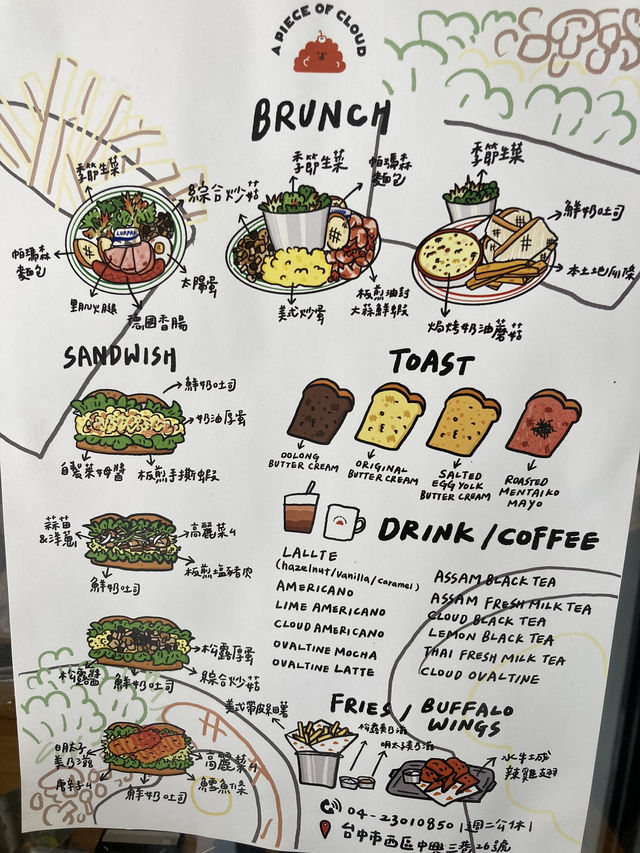 A PIECE OF CLOUD
BRUNCH
季節生菜
綜合炒菇
帕瑪森
麵包
太陽蛋
德國香腸
季節生菜
帕瑪森
麵包
美式炒蛋
板煎油封
大蒜鮮蝦
季節生菜
鮮奶吐司
本土地瓜條
焗烤奶油蘑菇
LURPAK
SANDWISH
鮮奶吐司
奶油厚蛋
自製萊姆醬
板煎手撕蝦
蒜苗
&洋蔥
高麗菜絲
板煎鹽豬肉
鮮奶吐司
松露厚蛋
松露醬
鮮奶吐司
綜合炒菇
明太子
美乃滋
高麗菜絲
唐辛子絲
鮮奶吐司
鱈魚條
TOAST
OOLONG
BUTTER CREAM
ORIGINAL
BUTTER CREAM
SALTED
EGG YOLK
BUTTER CREAM
ROASTED
MENTAIKO
MAYO
DRINK/COFFEE
LALLTE
(hazelnut/vanilla/caramel)
AMERICANO
LIME AMERICANO
CLOUD AMERICANO
OVALTINE MOCHA
OVALTINE LATTE
ASSAM BLACK TEA
ASSAM FRESH MILK TEA
CLOUD BLACK TEA
LEMON BLACK TEA
THAI FRESH MILK TEA
CLOUD OVALTINE
FRIES / BUFFALO
WINGS
美式帶皮細薯
松露美乃滋
明太子美乃滋
水牛城
辣雞翅
04-23010850 |週二公休|
台中市西區中興三巷26號